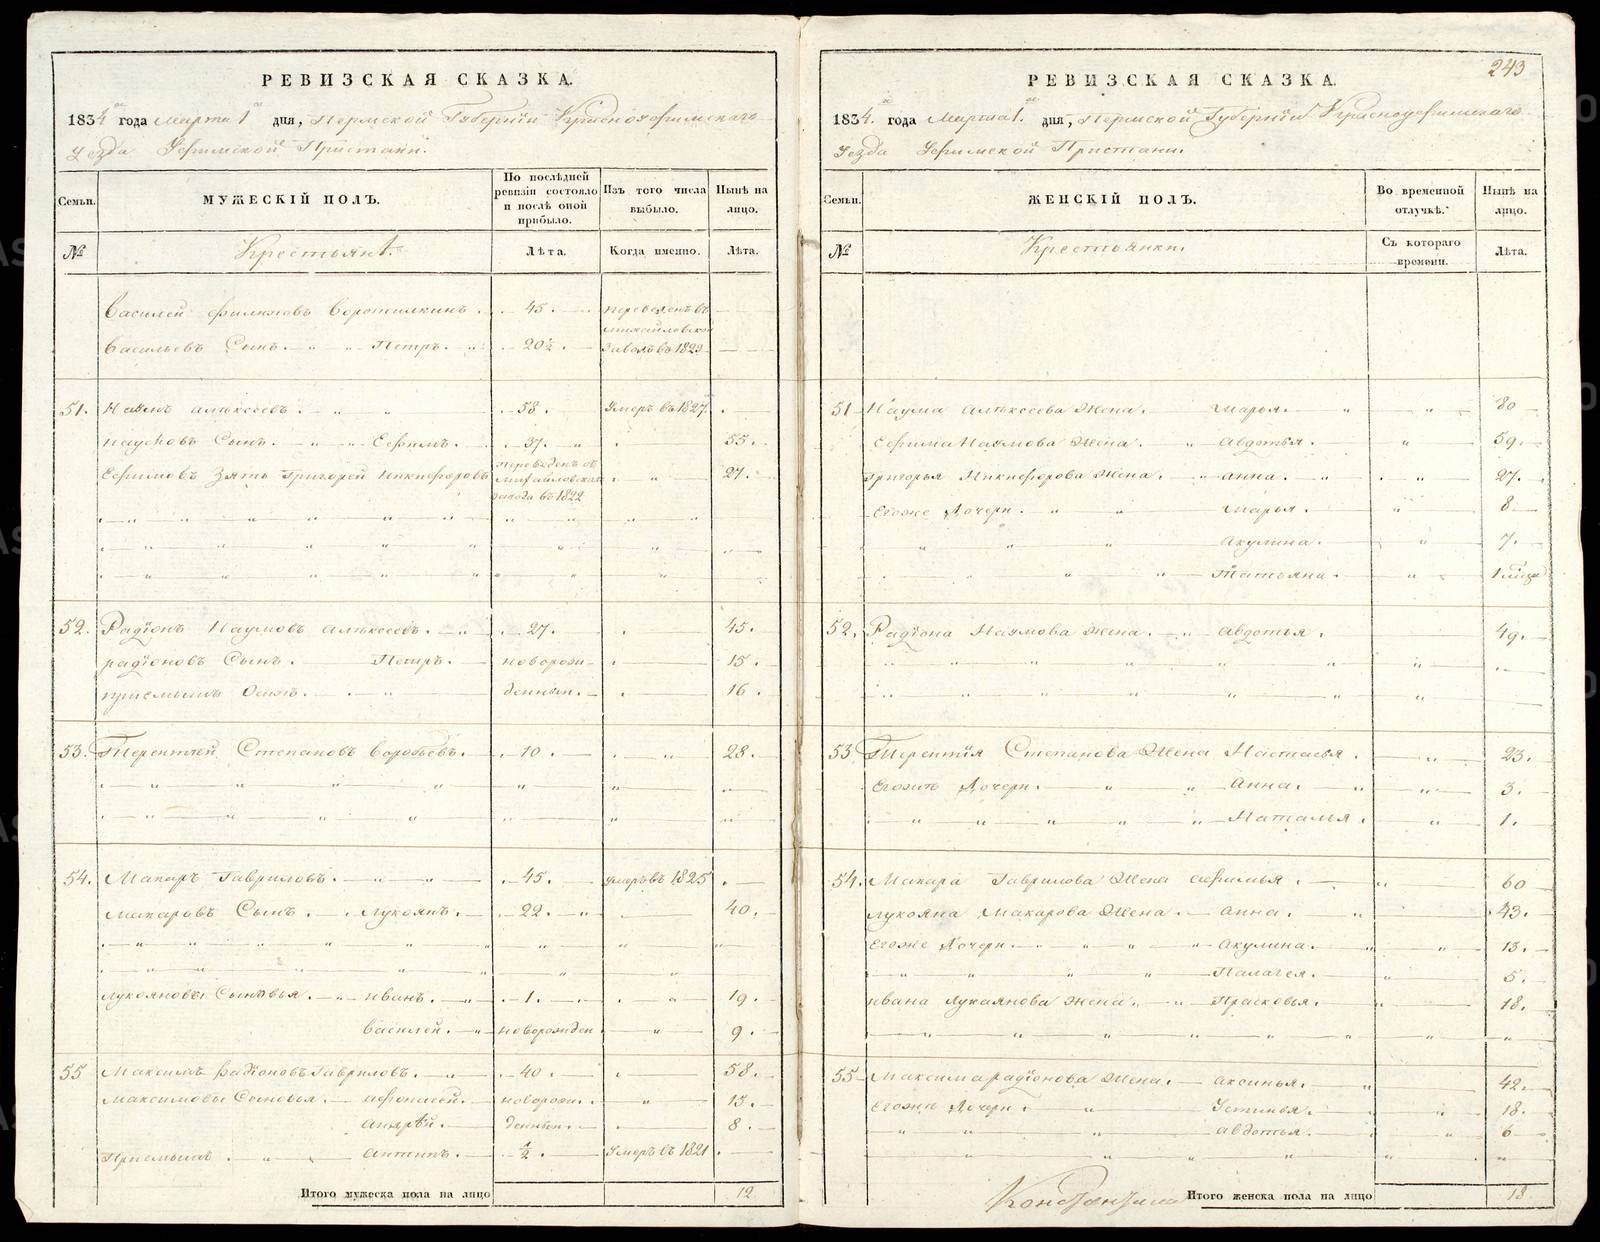 РЕВИЗСКАЯ СКАЗКА.
1834 года Марта 1 дня, Пермской Губернiи Красноуфимскаго
Уезда Уфимской Пристани.
Семьи.
МУЖЕСКIЙ ПОЛЪ.
По послѣдней ревизiи состояло и послѣ оной прибыло.
Изъ того числа выбыло.
Нынѣ на лицо.
№
Крестьянъ.
Лѣта.
Когда именно.
Лѣта.
Василей Филиповъ 45. переведенъ въ
Михайловской
Васильевъ Сынъ. Петръ. 20½. Заводъ въ 1829
51. Наумъ Алѣксеевъ. 58. Умеръ въ 1827.
Наумовъ Сынъ. Ефимъ. 37. 55.
Ефимовъ Зять Григорей Никифоровъ переведенъ съ Михайловскаго завода въ 1822 27.
52. Радiонъ Наумовъ Алѣксеевъ. 27. 45.
Радiоновъ Сынъ. Петръ. новорож- 15.
прiемышъ Осипъ. денныи. 16.
53. Терентiей Степановъ Воробьевъ. 10. 28.
54. Макаръ Гавриловъ. 45. умеръ въ 1825
Макаровъ Сынъ. Лукоянъ. 22. 40.
Лукояновы Сыновья. Иванъ. 1. 19.
Василей. новорожден 9.
55 Максимъ Радiоновъ Гавриловъ. 40. 58.
Максимовы Сыновья. Афонасей. новорож. 13.
Андрѣй. денныи. 8.
Прiемышъ. Антипъ. ½. Умеръ въ 1821
Итого мужеска пола на лицо 12
243
РЕВИЗСКАЯ СКАЗКА.
1834. года Марта 1. дня, Пермской Губернiи Красноуфимскаго
Уезда Уфимской Пристани.
Семьи.
ЖЕНСКIЙ ПОЛЪ.
Во временной отлучкѣ.
Нынѣ на лицо.
№
Крестьянки.
Съ котораго времени.
Лѣта.
51 Наума Алѣксеева Жена. Марья. 80
Ефима Наумова Жена. Авдотья. 59.
Григорья Никифорова Жена. Анна. 27.
Егоже Дочери. Марья. 8.
Акулина. 7.
Татьяна. 1
52. Радiона Наумова Жена. Авдотья. 49.
53 Терентiя Степанова Жена Настасья. 23.
Егожъ Дочери. Анна. 3.
Наталья. 1.
54. Макара Гаврилова Жена Афимья. 60
Лукояна Макарова Жена. Анна. 43.
Егоже Дочери. Акулина. 13.
Палагея. 5.
Ивана Лукоянова Жена. Прасковья. 18.
55 Максима Радiонова Жена. Аксинья. 42.
Егожъ Дочери. Устинья. 18.
Авдотья. 6
Итого женска пола на лицо 18